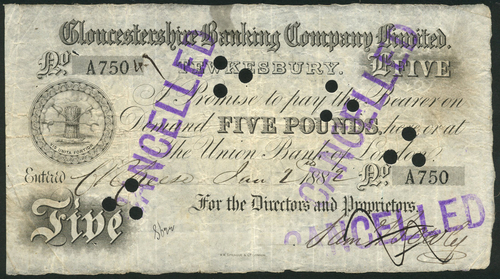 Gloucestershire Banking Company Limited.
No. A750 TEWKESBURY. FIVE
I Promise to pay the Bearer on
Demand FIVE POUNDS, here or at
The Union Bank of London
Entered Jan 2 1882 No. A750
For the Directors and Proprietors,
Five
CANCELLED
CANCELLED
CANCELLED